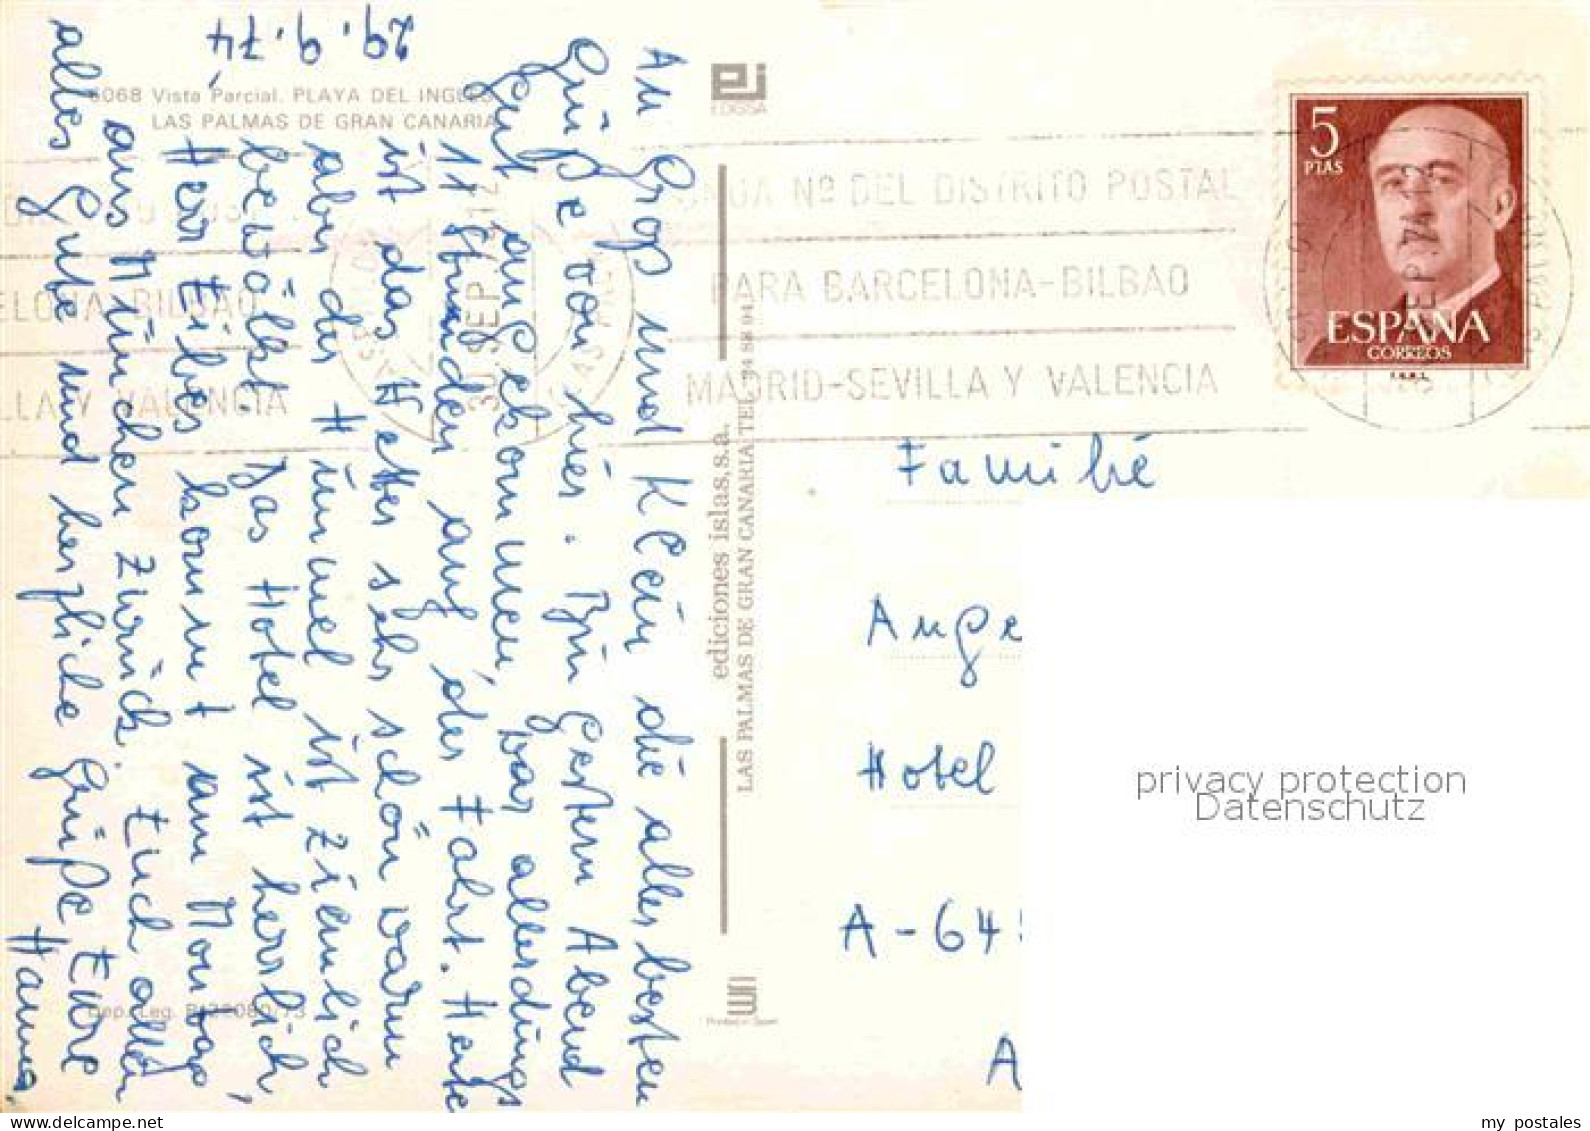 29.9.74
An Groß und Klein die allerbesten
Grüße von hier. Bin gestern Abend
gut angekommen, war allerdings
11 Stunden auf der Fahrt. Heute
ist das Wetter sehr schön warm
aber der Himmel ist ziemlich
bewölkt. Das Hotel ist herrlich,
Herr Eiber kommt am Montag,
aus München zurück. Euch allen
alles Gute und herzliche Grüße Eure
Hanna.
6068 Vista Parcial. PLAYA DEL INGLES
LAS PALMAS DE GRAN CANARIA
EDISSA
ediciones islas,s.a.
LAS PALMAS DE GRAN CANARIA
Printed in Spain
Dep. Leg.
5
PTAS
ESPAÑA
CORREOS
F.N.M.T.
PONGA Nº DEL DISTRITO POSTAL
PARA BARCELONA-BILBAO
MADRID-SEVILLA Y VALENCIA
30 SEP
Familie
Ange
Hotel
A-64
A
privacy protection
Datenschutz
my postales